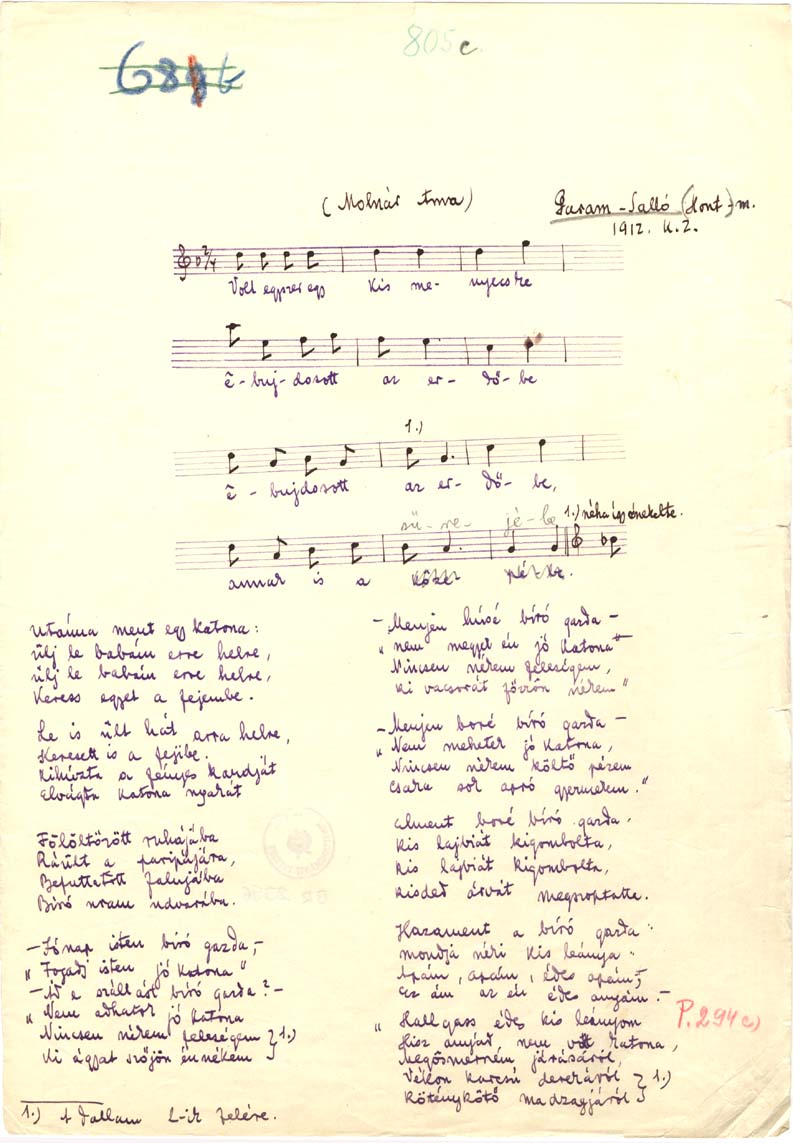 805c.
688b
(Molnár Anna)
Garam-Salló (Hont) m.
1912. K.Z.
2/4
Volt egyszer egy kis me- nyecske
ē-buj-dosott az er- dő-be
1.)
ē- bujdosott az er- dő- be,
sű- re- jé- be
1.) néha így énekelte.
annak is a közepébe.
Utánna ment egy katona:
ülj le babám erre helre,
ülj le babám erre helre,
keress egyet a fejembe.
Le is ült hát arra helre,
Keresett is a fejibe.
Kihúzta a fényes kardját
Elvágta katona nyakát
Fölöltözött ruhájába
Ráült a paripájára,
Befuttatott falujába
Bíró uram udvarába.
-Jónap isten bíró gazda,-
"Fogadj isten jó katona"
-Ad e szállást bíró gazda?-
"Nem adhatok jó katona
Nincsen nékem feleségem } 1.)
Ki ágyat szőjön énnékem }
1.) A dallam 2-ik felére.
-Menjen húsé bíró gazda-
"nem megyek én jó katona"
Nincsen nékem feleségem,
ki vacsorát főzzön nékem"
-Menjen boré bíró gazda-
"Nem mehetek jó katona,
Nincsen nékem költő pézem
Csak a sok apró gyermekem."
elment boré bíró gazda.
kis lajbiát kigombolta,
kis lajbiát kigombolta,
kisded árvát megszoptatta.
Hazament a bíró gazda:
mondja néki kis leánya:
Apám, apám, édes apám,
Ez ám az én édes anyám.-
"Hallgass édes kis leányom
Hisz anyád, nem vót katona,
Megösmerném járásáról,
Vékon karcsú derekáról } 1.)
köténykötő madzagjáról }
P.294c)